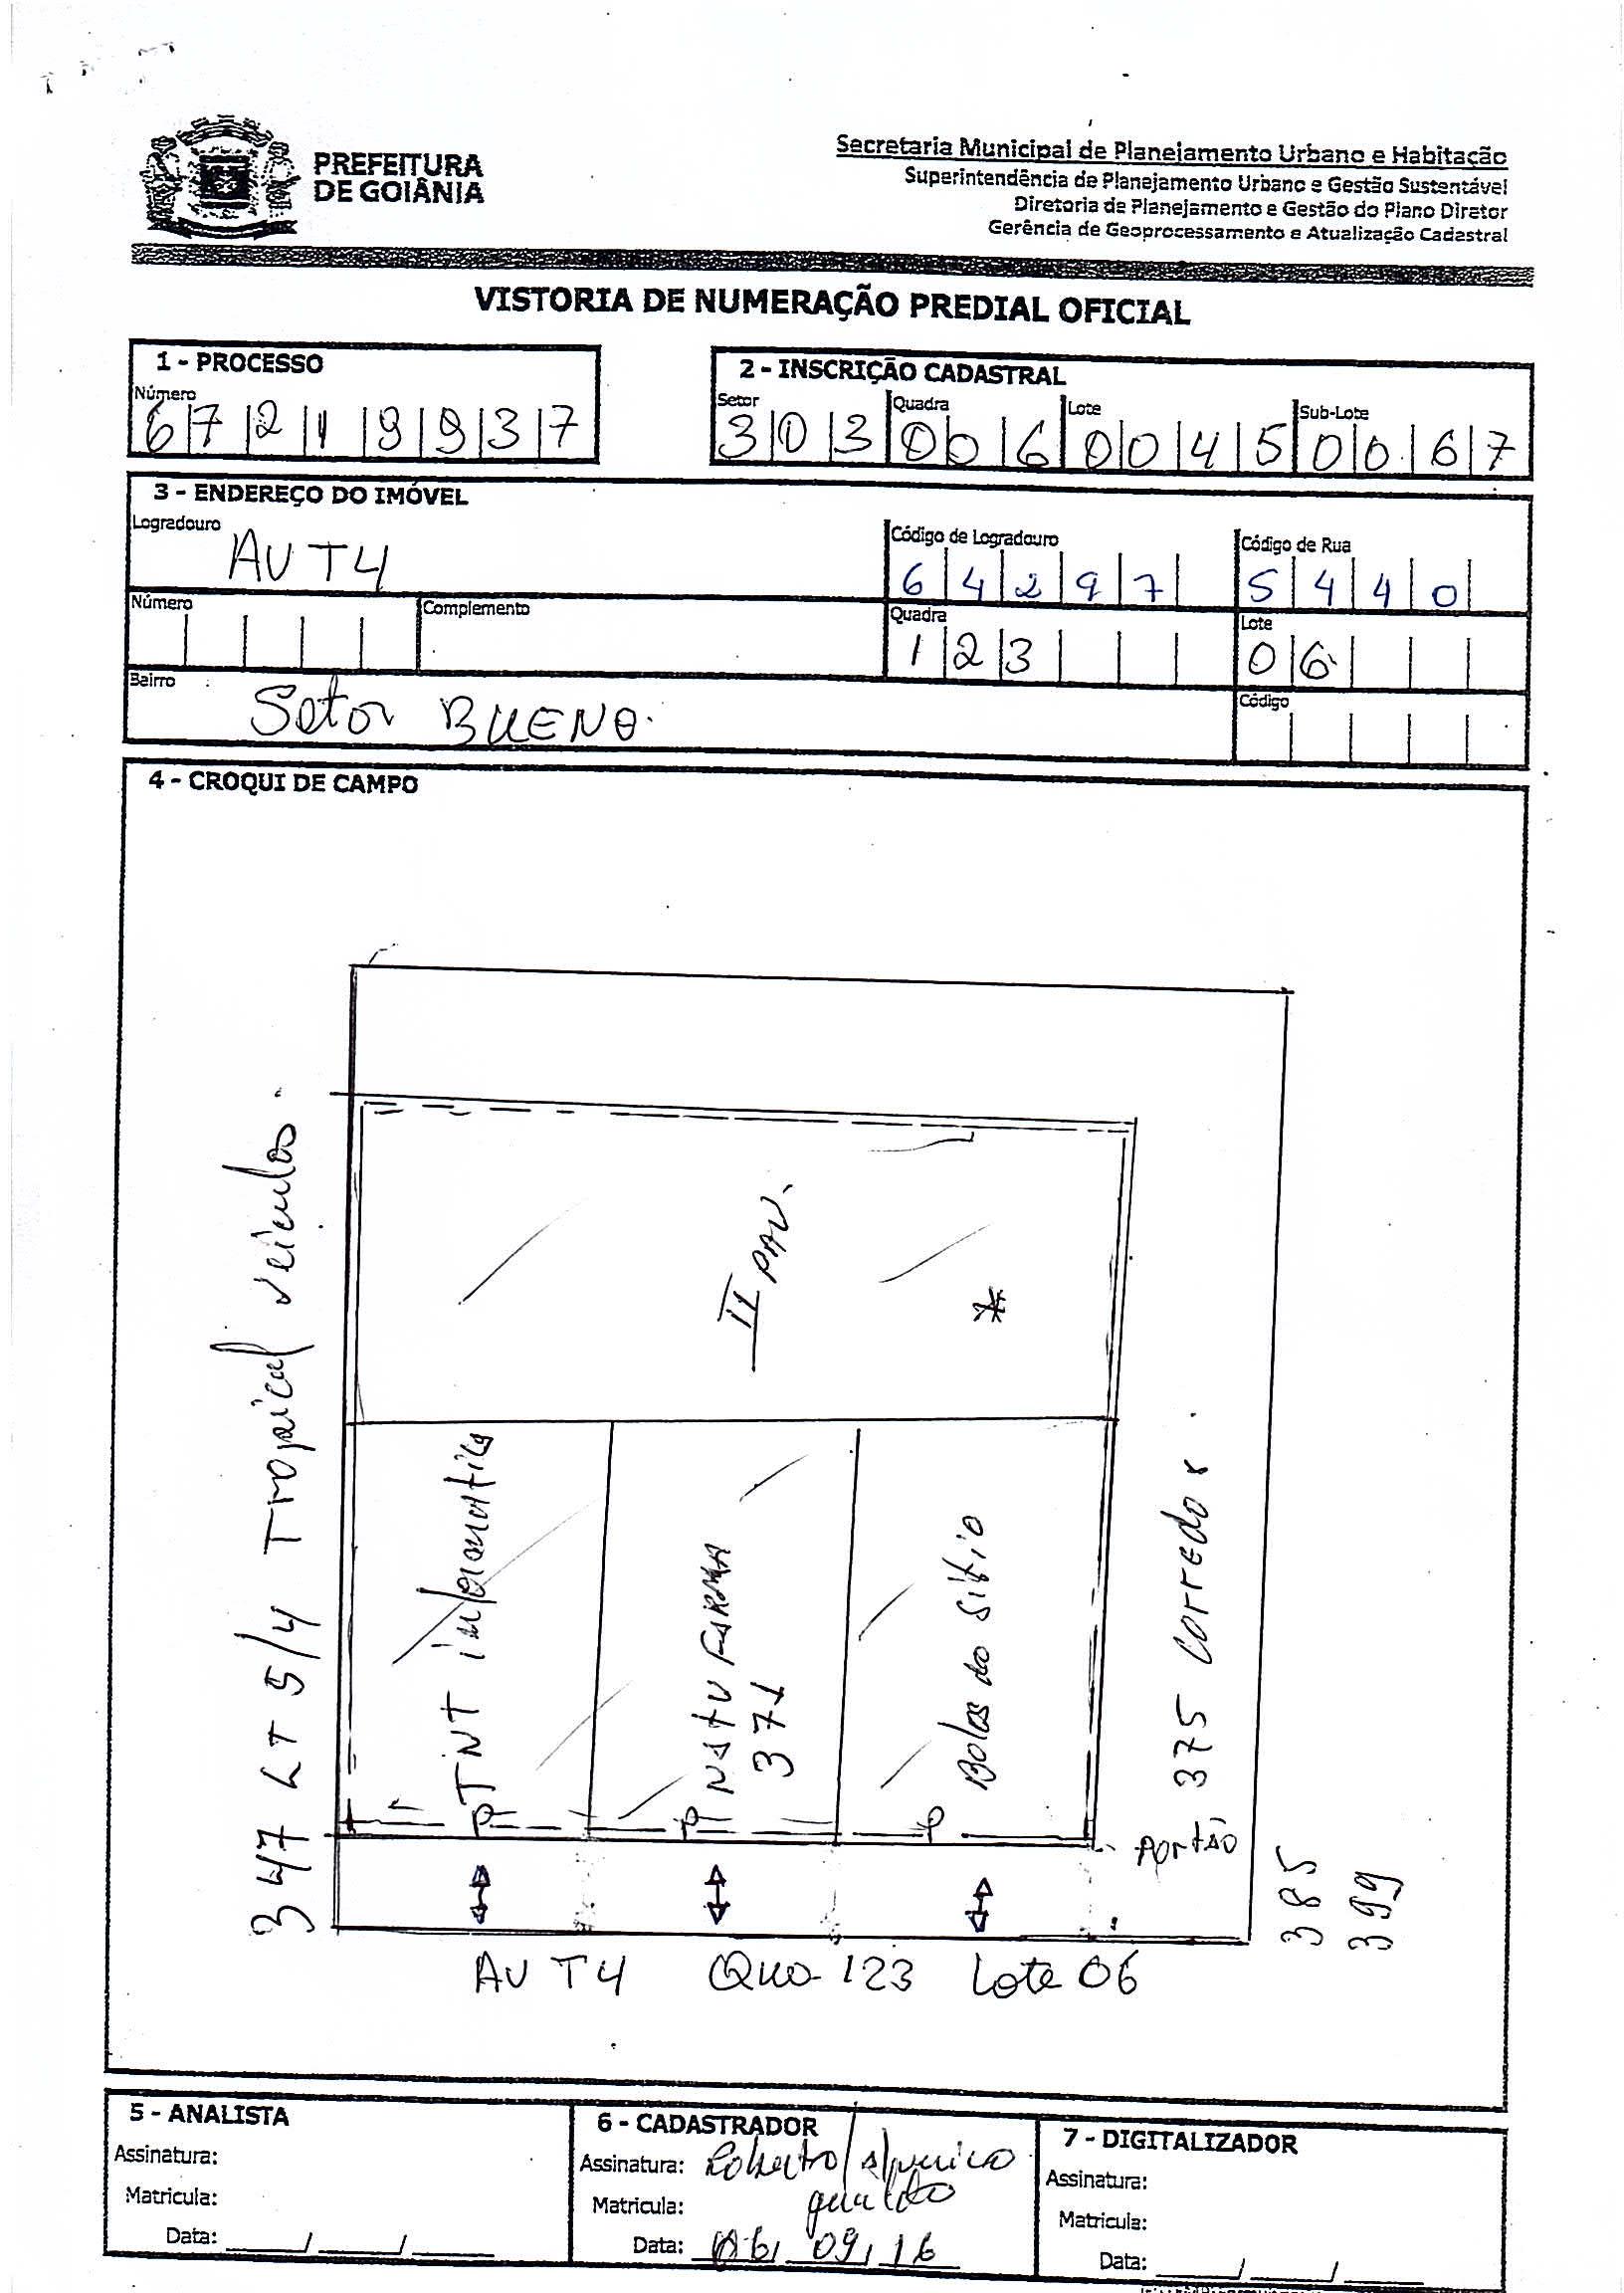 PREFEITURA
DE GOIÂNIA
Secretaria Municipal de Planejamento Urbano e Habitação
Superintendência de Planejamento Urbano e Gestão Sustentável
Diretoria de Planejamento e Gestão do Plano Diretor
Gerência de Geoprocessamento e Atualização Cadastral
VISTORIA DE NUMERAÇÃO PREDIAL OFICIAL
1 - PROCESSO
Número
6 7 2 1 9 9 3 7
2 - INSCRIÇÃO CADASTRAL
Setor Quadra Lote Sub-Lote
3 0 3 0 0 6 0 0 4 5 0 0 6 7
3 - ENDEREÇO DO IMÓVEL
Logradouro
AV T4
Código de Logradouro
6 4 2 9 7
Código de Rua
5 4 4 0
Número
Complemento
Quadra
1 2 3
Lote
0 6
Bairro
Setor BUENO.
Código
4 - CROQUI DE CAMPO
347 LT 5/4 Tropical veículos.
II PAV.
*
TNT informatica
NATU FARMA
371
Bolos do Sítio
375 corredor.
P P P
Portão
385
399
AV T4 Qua 123 Lote 06
5 - ANALISTA
Assinatura:
Matricula:
Data: / /
6 - CADASTRADOR
Assinatura: Roberto
Matricula:
Data: 06/09/16
7 - DIGITALIZADOR
Assinatura:
Matricula:
Data: / /